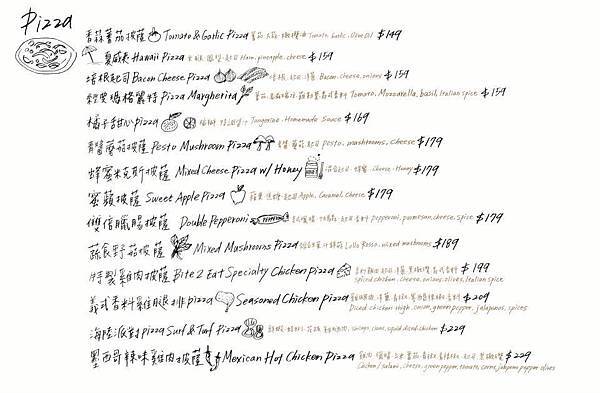 Pizza
香蒜蕃茄披薩 Tomato & Garlic Pizza 蕃茄 大蒜 橄欖油 Tomato, Garlic, Olive Oil $149
夏威夷 Hawaii Pizza 火腿 鳳梨 起司 Ham, pineapple, cheese $159
培根起司 Bacon Cheese Pizza 培根 起司 洋蔥 Bacon, cheese, onions $159
經典瑪格麗特 Pizza Margherita Tomato, Mozzarella, basil, Italian spice $159
橘子甜心 pizza Tangerine, Homemade Sauce $169
青醬蘑菇披薩 Pesto Mushroom Pizza 青醬 蘑菇 起司 pesto, mushrooms, cheese $179
蜂蜜米克斯披薩 Mixed Cheese Pizza w/ Honey 蜂蜜 Cheese, Honey $179
蜜蘋披薩 Sweet Apple Pizza 蘋果 焦糖 起司 Apple, Caramel, cheese $179
雙倍臘腸披薩 Double Pepperoni pepperoni, parmesan cheese, spice $179
蔬食野菇披薩 Mixed Mushrooms Pizza Lollo Rosso, mixed mushrooms $189
特製雞肉披薩 Bite 2 Eat Specialty Chicken Pizza $199
spiced chicken, cheese, onions, olives, Italian spice
義式香料雞腿排 pizza Seasoned Chicken pizza $209
Diced chicken thigh, onion, green pepper, jalapenos, spices
海陸派對 pizza Surf & Turf Pizza shrimps, clams, squid, diced chicken $229
墨西哥辣味雞肉披薩 Mexican Hot Chicken Pizza $229
Chicken / salami, cheese, green pepper, tomato, corns, jalapeno pepper, olives